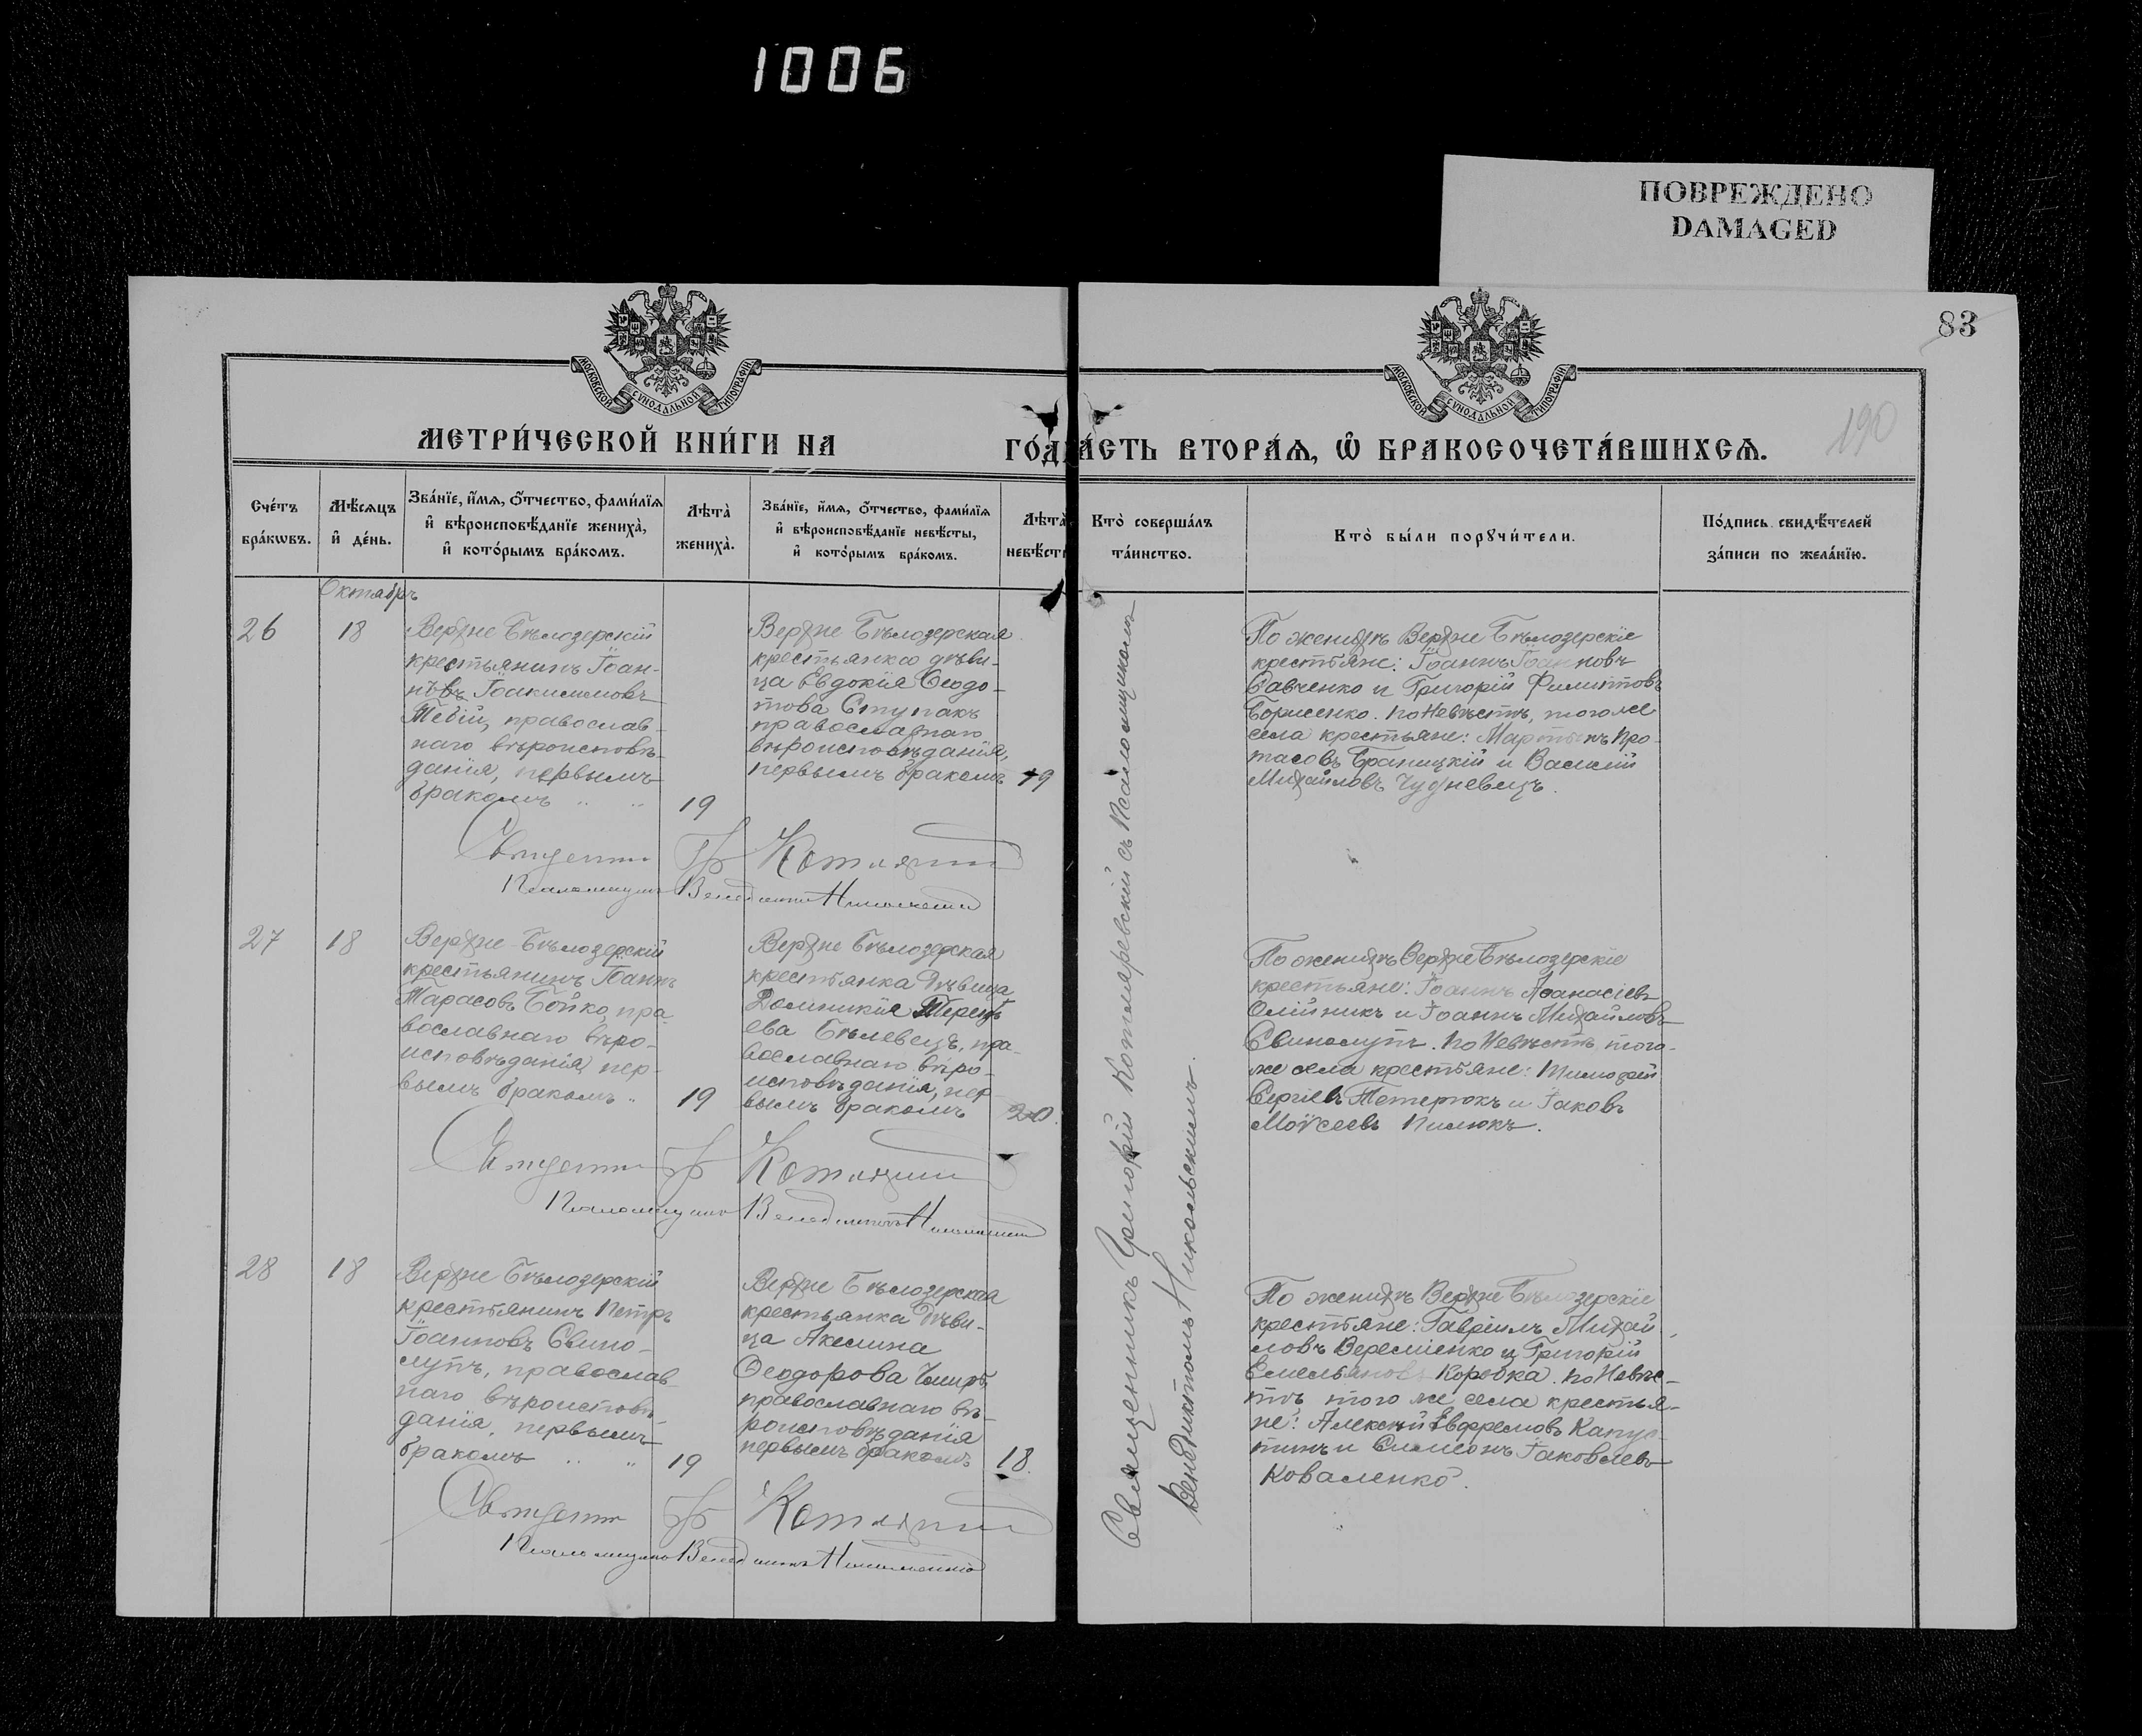 1006
ПОВРЕЖДЕНО
DAMAGED
83
190
МОСКОВСКОЙ СѴНОДАЛЬНОЙ ТИПОГРАФІИ
МОСКОВСКОЙ СѴНОДАЛЬНОЙ ТИПОГРАФІИ
МЕТРИ́ЧЕСКОЙ КНИ́ГИ НА ГО́Д
А́СТЬ ВТОРА́Ѧ, Ѽ БРАКОСОЧЕТА́ВШИХСѦ.
Сче́тъ
бра́кѡвъ.
Мѣ́сѧцъ
и҆ де́нь.
Зва́нїе, и҆́мѧ, ѻ҆́тчество, фами́лїѧ
и҆ вѣроисповѣ́данїе жениха̀,
и҆ кото́рымъ бра́комъ.
Лѣта̀
жениха̀.
Зва́нїе, и҆́мѧ, ѻ҆́тчество, фами́лїѧ
и҆ вѣроисповѣ́данїе невѣ́сты,
и҆ кото́рымъ бра́комъ.
Лѣта̀
невѣ́сты
Кто̀ соверша́лъ
та́инство.
Кто̀ бы́ли порꙋчи́тели.
По́дпись свидѣ́телей
за́писи по жела́нїю.
Октябрь
26
18
Верхне Бѣлозерскій
крестьянинъ Іоан-
новъ Іоакимовъ
Тебій, православ-
наго вѣроисповѣ-
данія, первымъ
бракомъ " "
19
Верхне Бѣлозерская
крестьянка дѣви-
ца Евдокія Ѳеодо-
това Ступакъ
православнаго
вѣроисповѣданія,
первымъ бракомъ
19
По женихѣ Верхне Бѣлозерскіе
крестьяне: Іоаннъ Іоанновъ
Савченко и Григорій Филиповъ
Борисенко. по Невѣстѣ, того же
села крестьяне: Мартинъ Про-
тасовъ Браницкій и Василій
Михайловъ Чудневецъ.
Священникъ Гр Котляревскій
Псаломщикъ Венедиктъ Никольскій
27
18
Верхне-Бѣлозерскій
крестьянинъ Іоаннъ
Тарасовъ Бойко, пра-
вославнаго вѣро-
исповѣданія, пер-
вымъ бракомъ "
19
Верхне Бѣлозерская
крестьянка Дѣвица
Домникія Терентъ
ева Бѣлевецъ, пра-
вославнаго вѣро-
исповѣданія, пер-
вымъ бракомъ
20.
По женихѣ Верхне Бѣлозерскіе
крестьяне: Іоаннъ Аѳанасіевъ
Олійникъ и Іоаннъ Михайловъ
Свинолупъ. по Невѣстѣ того-
же села крестьяне: Тимоѳей
Сергіевъ Тетерюкъ и Іаковъ
Моѵсеевъ Пилюкъ.
Священникъ Гр Котляревскій
Псаломщикъ Венедиктъ Никольскій
28
18
Верхне Бѣлозерскій
крестьянинъ Петръ
Іоанновъ Свино-
лупъ, православ-
наго вѣроисповѣ-
данія, первымъ
бракомъ " "
19
Верхне Бѣлозерская
крестьянка Дѣви-
ца Акелина
Ѳеодорова
православнаго вѣ-
роисповѣданія
первымъ бракомъ
18.
По женихѣ Верхне Бѣлозерскіе
крестьяне: Гавріилъ Михай
ловъ Вереміенко и Григорій
Емельяновъ Коробка. по Невѣс-
тѣ того же села крестья-
не: Алексѣй Евфремовъ Капус
тинъ и Симеонъ Іаковлевъ
Коваленко.
Священникъ Гр Котляревскій
Псаломщикъ Венедиктъ Никольскій
Священникъ Григорій Котляревскій съ Псаломщикомъ
Венедиктомъ Никольскимъ.